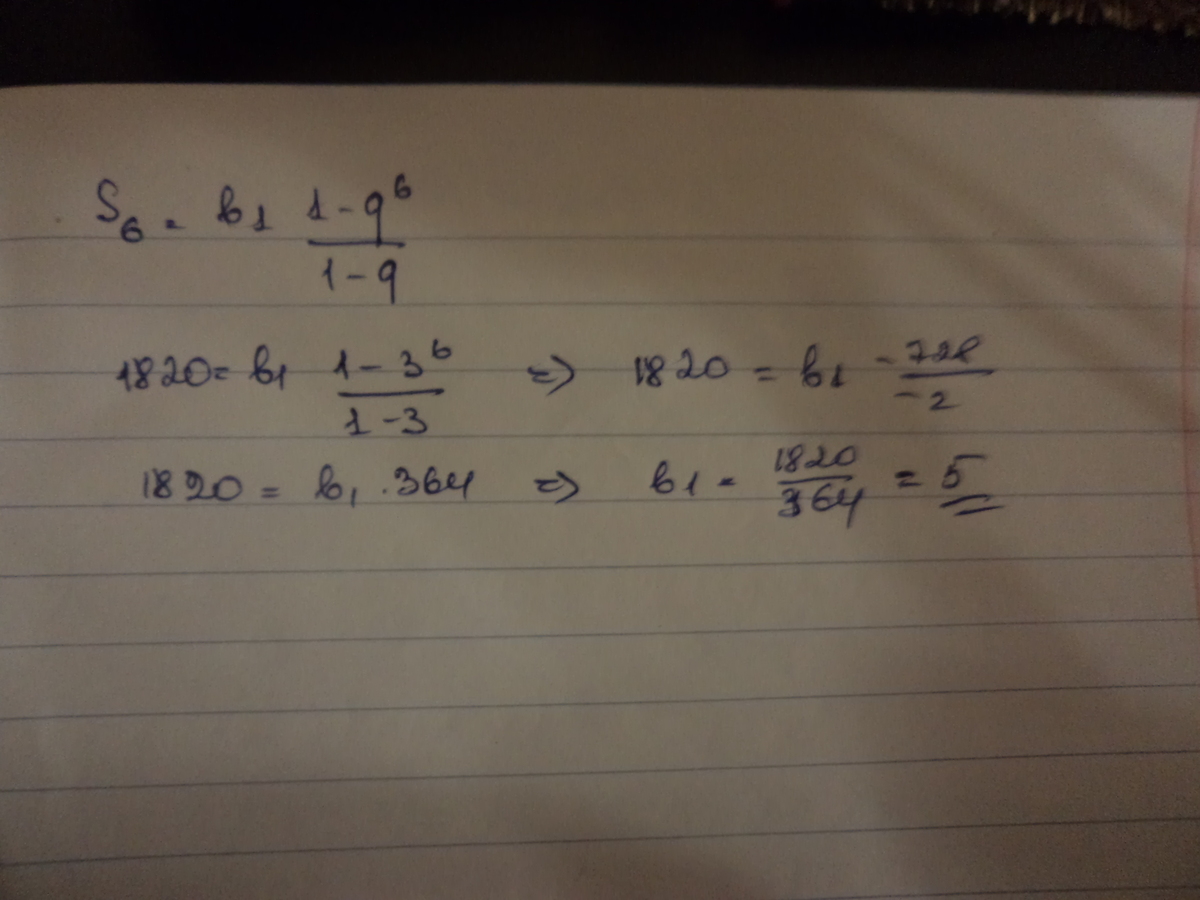 S₆ = b₁ (1-q⁶)/(1-q)
1820 = b₁ (1-3⁶)/(1-3) => 1820 = b₁ (-728)/(-2)
1820 = b₁ · 364 => b₁ = 1820/364 = 5